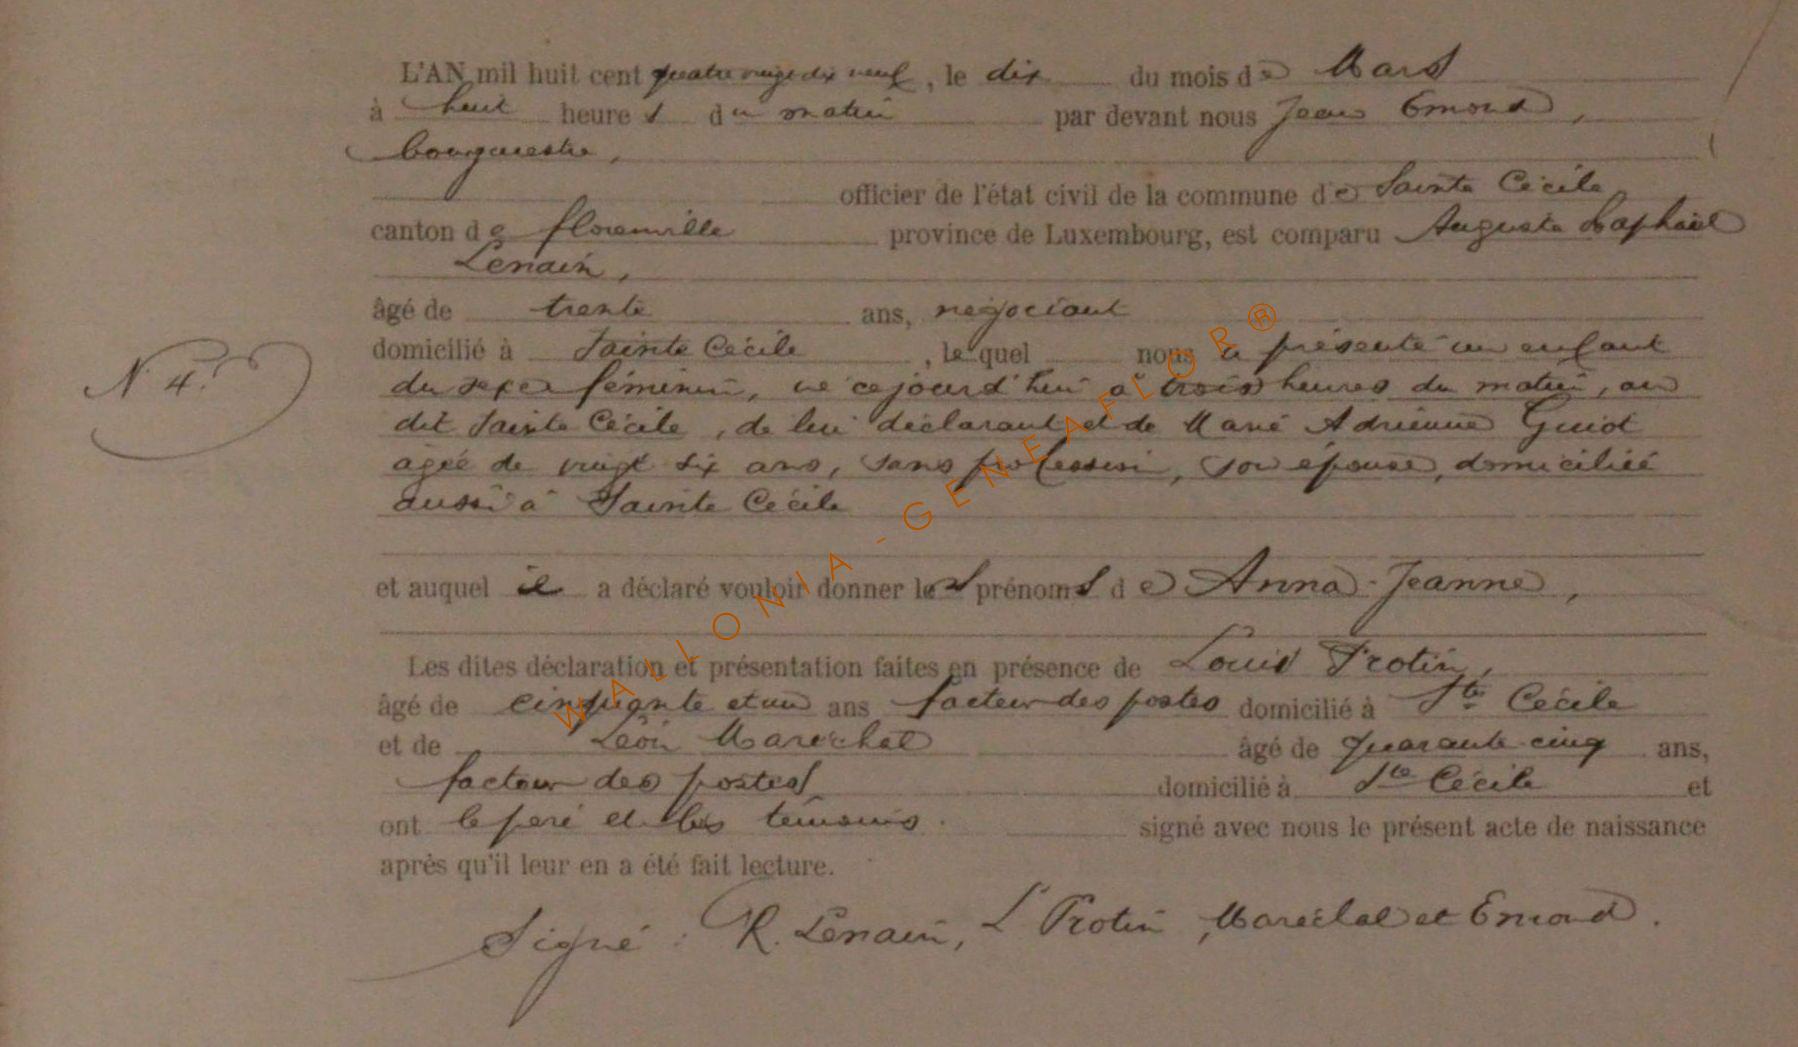 L'AN mil huit cent quatre vingt dix neuf, le dix du mois de Mars
à huit heures du matin par devant nous Jean Emond,
bourgmestre,
officier de l'état civil de la commune de Sainte Cécile
canton de florenville province de Luxembourg, est comparu Auguste Raphaël
Lenain,
âgé de trente ans, négociant
domicilié à Sainte Cécile, lequel nous a présenté un enfant
N° 4.
du sexe féminin, né cejourd'hui à trois heures du matin, au
dit Sainte Cécile, de lui déclarant et de Marie Adrienne Guiot
agée de vingt six ans, sans profession, son épouse, domiciliée
aussi à Sainte Cécile
et auquel il a déclaré vouloir donner les prénoms de Anna-Jeanne,
Les dites déclaration et présentation faites en présence de Louis Protin,
âgé de cinquante et un ans facteur des postes domicilié à Ste Cécile
et de Léon Maréchal âgé de quarante cinq ans,
facteur des postes domicilié à Ste Cécile et
ont le père et les témoins. signé avec nous le présent acte de naissance
après qu'il leur en a été fait lecture.
Signé : R. Lenain, L Protin, Maréchal et Emond.
WALLONIA - GENEAFLOR ®